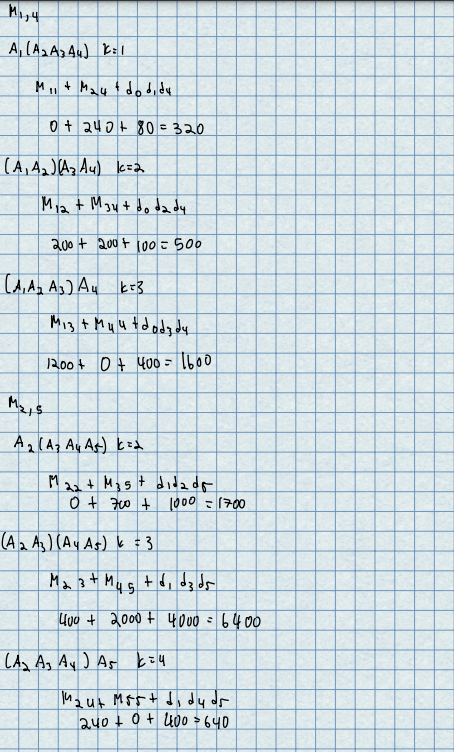 M1,4
A1(A2A3A4) k=1
M11 + M24 + d0d1d4
0 + 240 + 80 = 320
(A1A2)(A3A4) k=2
M12 + M34 + d0d2d4
200 + 200 + 100 = 500
(A1A2A3)A4 k=3
M13 + M44 + d0d3d4
1200 + 0 + 400 = 1600
M2,5
A2(A3A4A5) k=2
M22 + M35 + d1d2d5
0 + 700 + 1000 = 1700
(A2A3)(A4A5) k=3
M23 + M45 + d1d3d5
400 + 2000 + 4000 = 6400
(A2A3A4)A5 k=4
M24 + M55 + d1d4d5
240 + 0 + 400 = 640